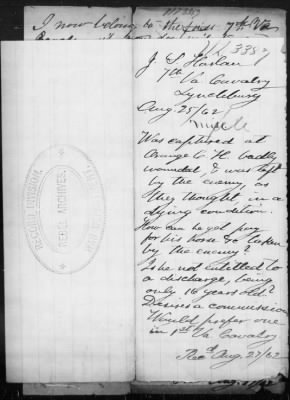 I now belong to the 7th Va
J. S. Harlan
7th
Va Cavalry
Lynchburg
Aug. 25/62
Was captured at
Orange C. H. badly
wounded, & was left
by the enemy, as
they thought, in a
dying condition.
How can he get pay
for his horse so taken
by the enemy?
Is he not entitled to
a discharge, being
only 16 years old?
Desires a commission
Would prefer one
in 1st Va Cavalry
Recd Aug. 27/62
RECORD DIVISION
REBEL ARCHIVES
WAR DEPARTMENT